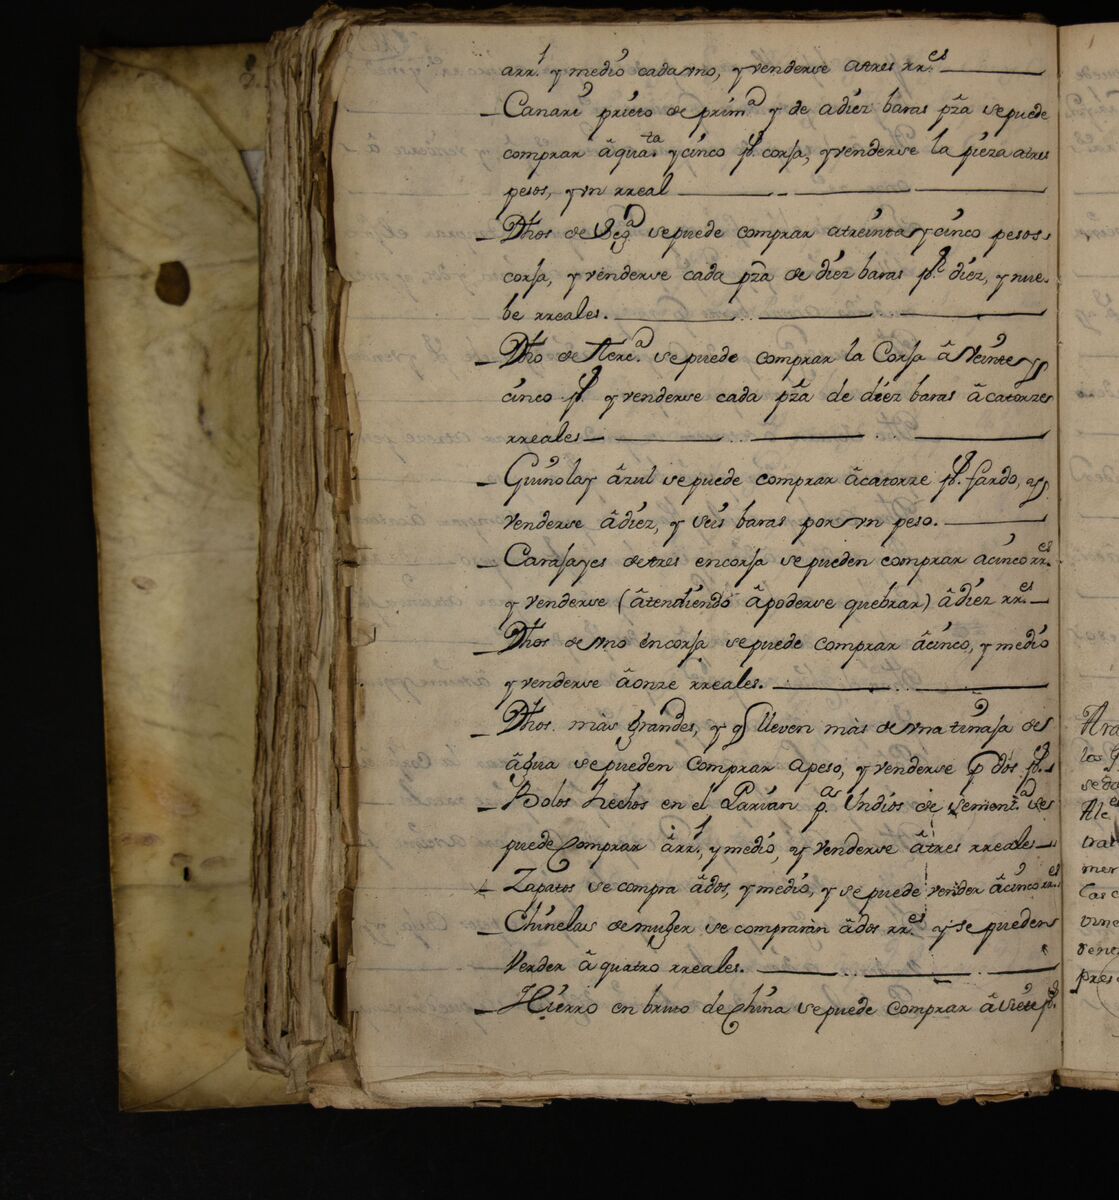 arr.l y medio cada vno, y venderse atres rr.es
Canari prieto de prim.a y de adiez baras pza sepuede
comprar âquar.ta y cinco p.s corja, yvenderse la pieza atres
pesos, y vn rreal
Dhos de Seg.a sepuede comprar atreinta y cinco pesos
corja, y venderse cada pza de diez baras p.r diez, y nue-
be rreales.
Dho de terc.a se puede comprar la Corja â Veinte y
cinco p.s y venderse cada pza de diez baras âcatorze
rreales
Guinolas âzul sepuede comprar âcatorze p.s fardo, y
venderse âdiez, y seis baras por vn peso.
Carajayes detres encorja sepueden comprar acinco rr.es
y venderse (âtendiendo âpoderse quebrar) âdiez rr.es
Dhos de vno encorja sepuede comprar âcinco, y medio
y venderse âonze rreales.
Dhos mas grandes, y q lleven màs de vna tinaja de
âgua sepueden comprar apeso, y venderse p dos p.s
Bolos hechos en el Parian p.a Yndios de sement.a se
puede Comprar ârr.l y medio, y venderse âtres rreales
Zapatos se compra âdos, y medio, y sepuede vender âcinco rr.es
Chinelas demuger se compraràn âdos rr.es y se pueden
Vender â quatro rreales.
Hierro en bruto deChina sepuede comprar â siete p.s